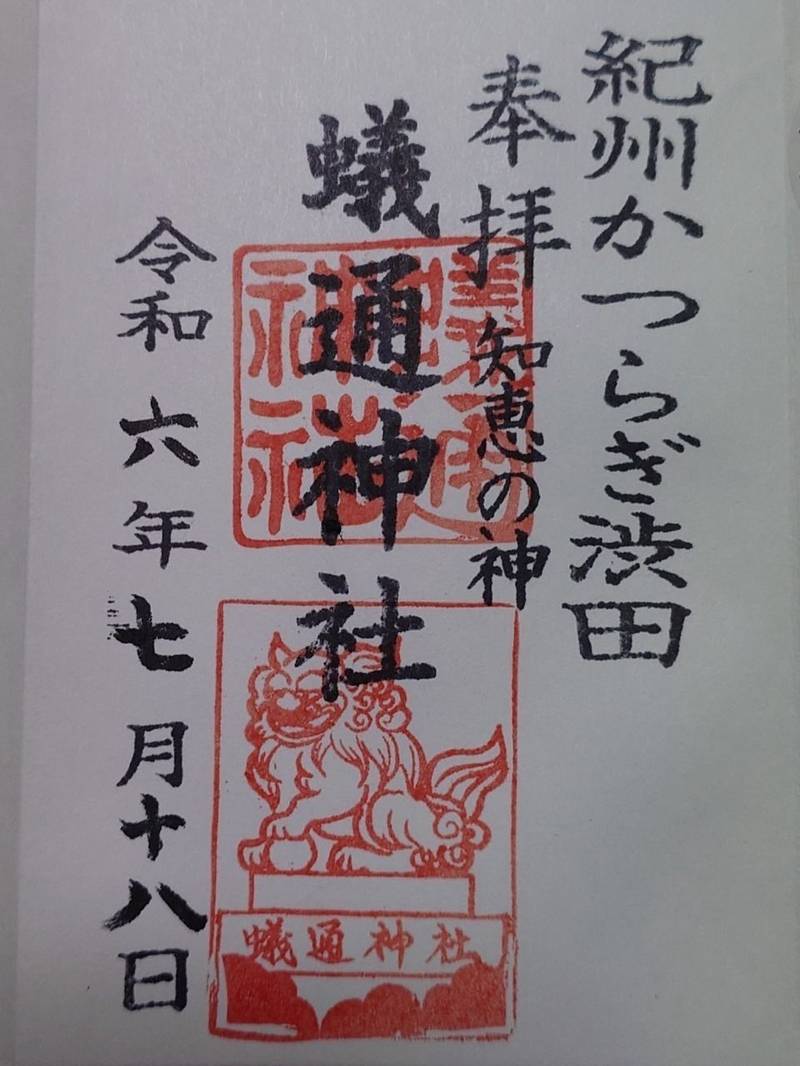 紀州かつらぎ渋田
奉拝
知恵の神
蟻通神社
令和六年七月十八日
蟻通神社
蟻通神社